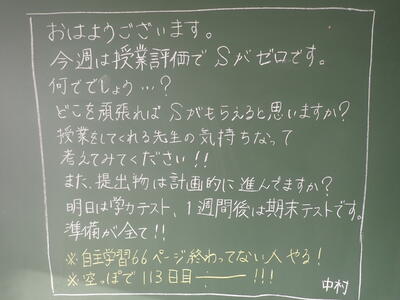 おはようございます。
今週は授業評価でSがゼロです。
何ででしょう…?
どこを頑張ればSがもらえると思いますか?
授業をしてくれる先生の気持ちなって
考えてみてください!!
また、提出物は計画的に進んでますか?
明日は学力テスト、1週間後は期末テストです。
準備が全て!!
※自主学習66ページ終わってない人やる!
※空っぽで113日目…――!!!
中村